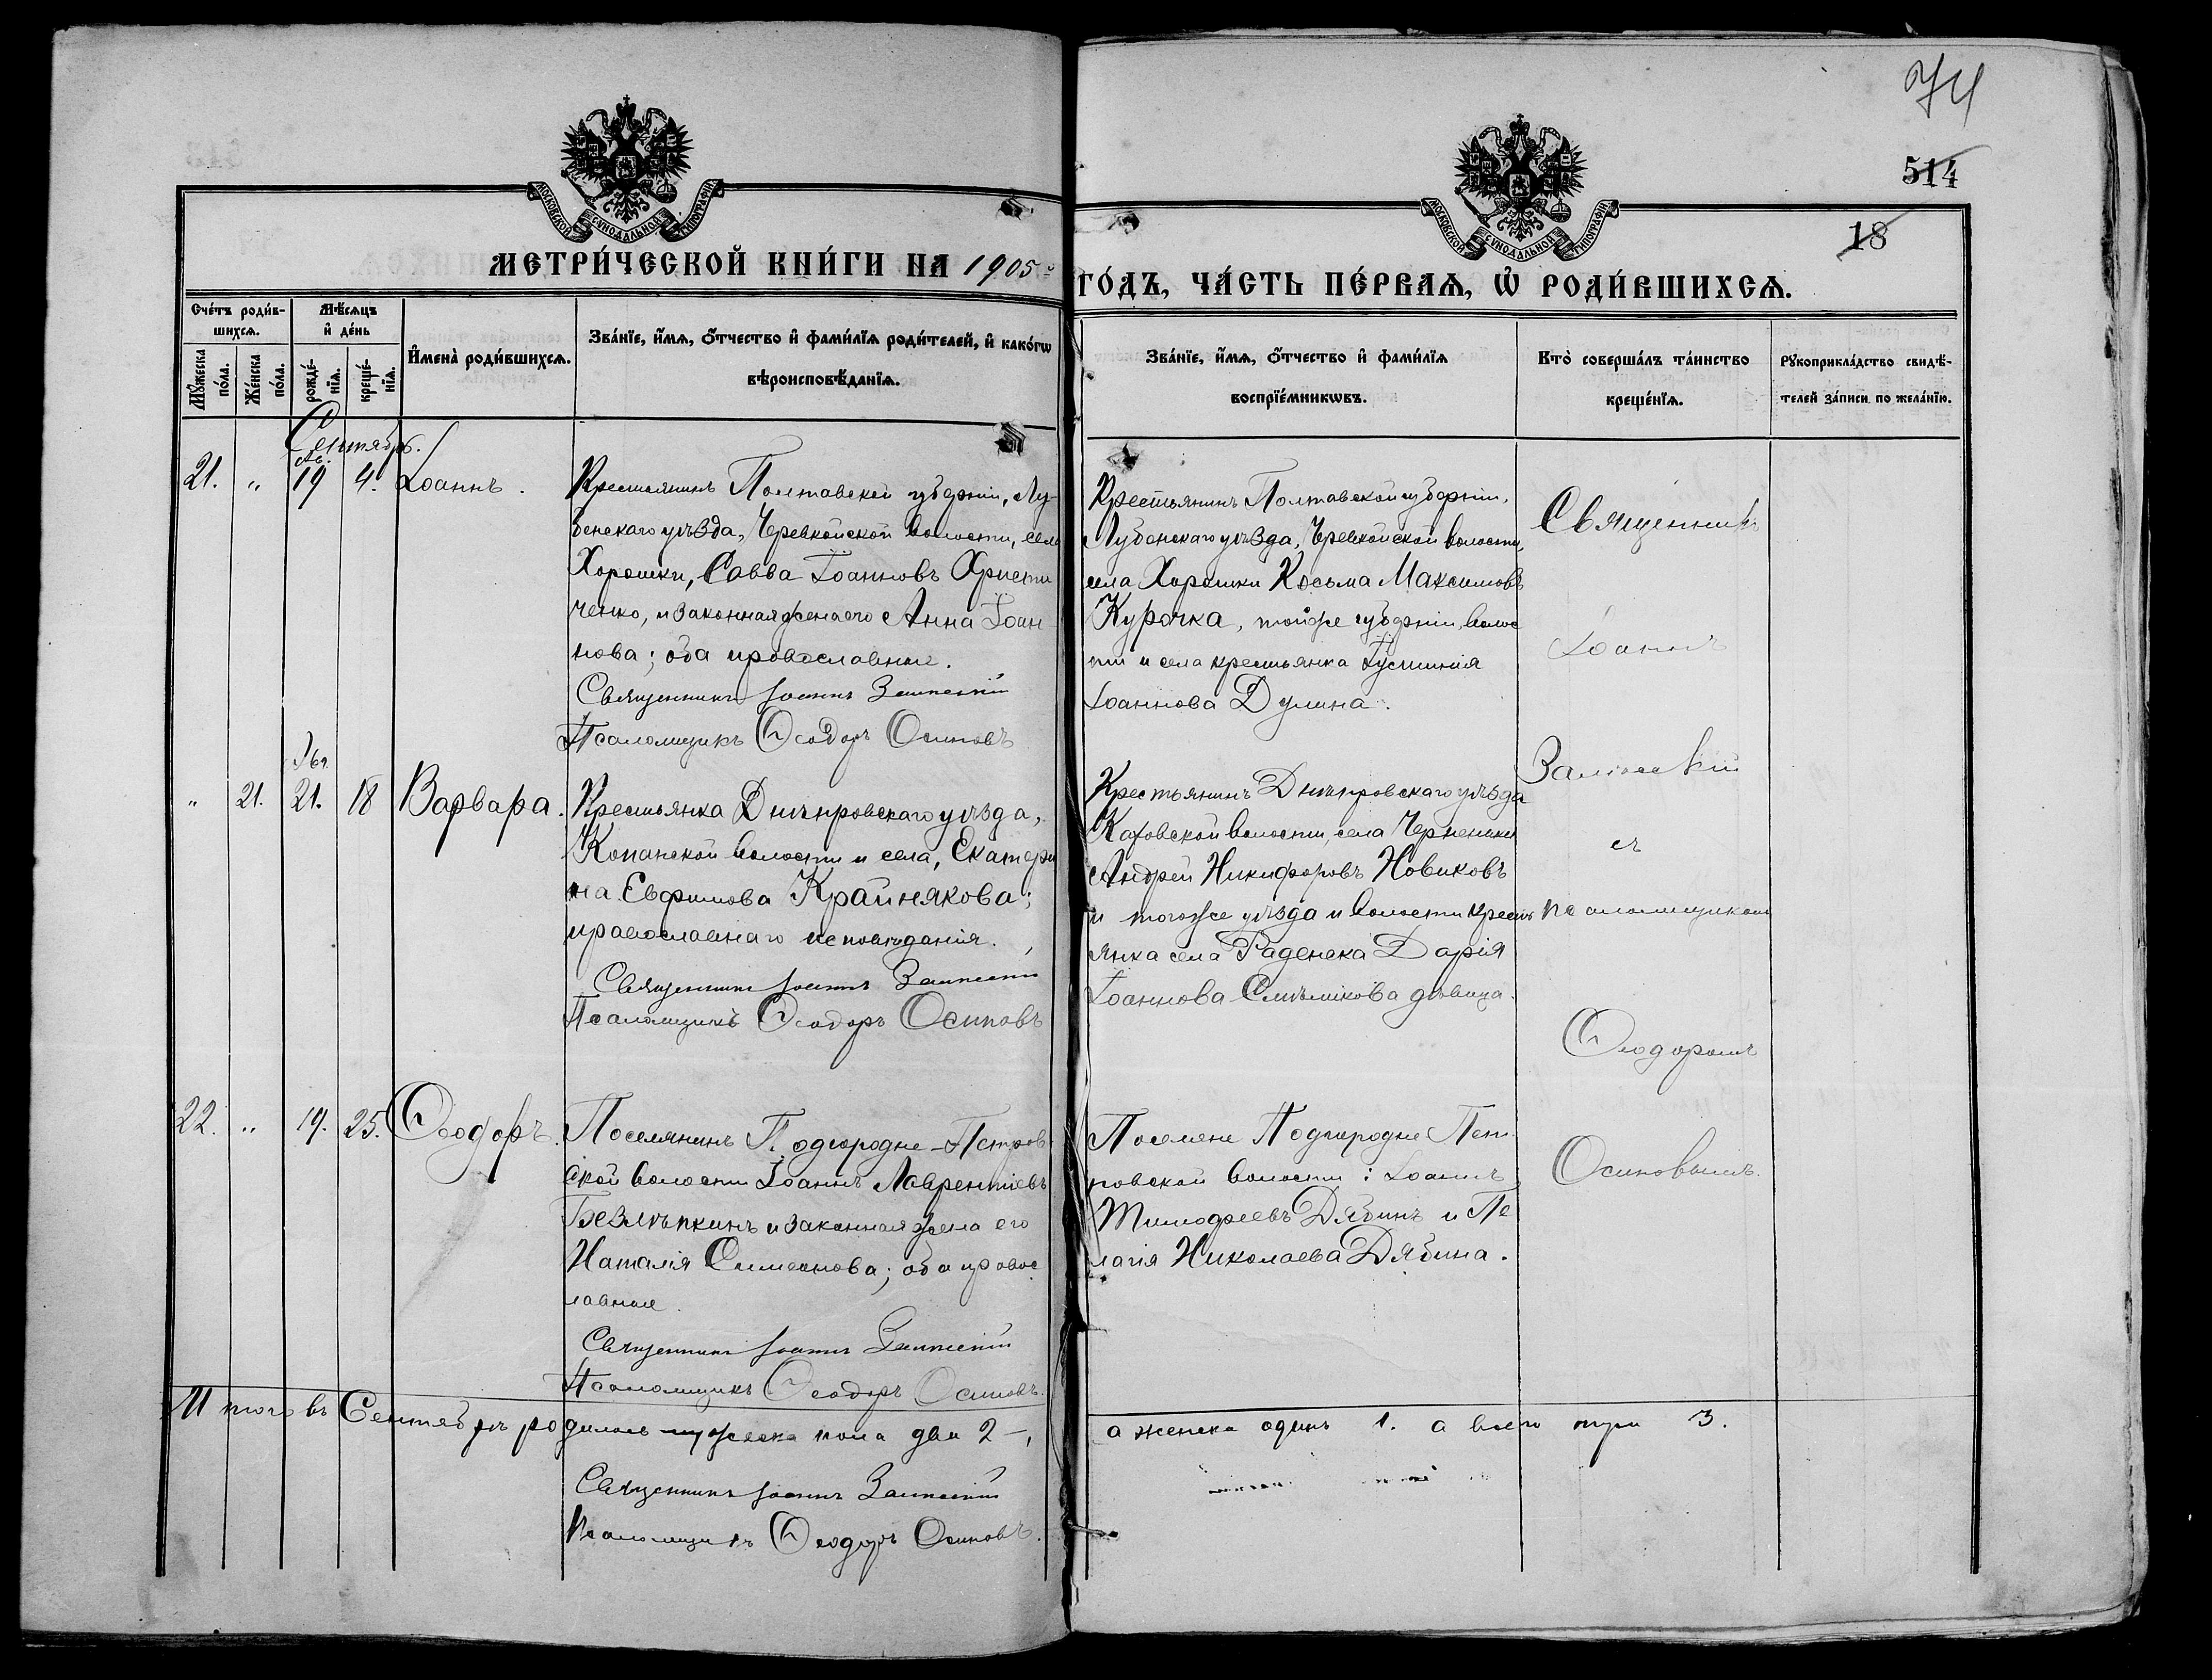 74
514
18
МОСКОВСКОЙ СѴНОДАЛЬНОЙ ТИПОГРАФІИ
МОСКОВСКОЙ СѴНОДАЛЬНОЙ ТИПОГРАФІИ
МЕТРИ́ЧЕСКОЙ КНИ́ГИ НА 1905й
ГО́ДЪ, ЧА́СТЬ ПЕ́РВАѦ, Ѡ҆ РОДИ́ВШИХСѦ.
Сче́тъ роди́в-
шихсѧ.
Мѣ́сѧцъ
и҆ де́нь
Мꙋ́жеска по́ла.
Же́нска по́ла.
рожде́-нїѧ.
креще́-нїѧ.
И҆мена̀ роди́вшихсѧ.
Зва́нїе, и҆́мѧ, ѻ҆́тчество и҆ фами́лїѧ роди́телей, и҆ како́гѡ
вѣроисповѣ́данїѧ.
Зва́нїе, и҆́мѧ, ѻ҆́тчество и҆ фами́лїѧ
воспрїе́мникѡвъ.
Кто̀ соверша́лъ та́инство
креще́нїѧ.
Рꙋкоприкла́дство свидѣ́-
телей за́писи по жела́нїю.
Сентябрь.
Ав.
21. „ 19 4. Іоаннъ.
Крестьянинъ Полтавской губерніи, Лу-
бенскаго уѣзда, Черевкойской волости, села
Хорошки, Савва Іоанновъ Христи
ченко, и законная жена его Анна Іоан
нова; оба православные.
Священникъ Іоаннъ
Псаломщикъ Ѳеодоръ Осиповъ
Крестьянинъ Полтавской губерніи,
Лубенскаго уѣзда, Черевкойской волости,
села Хорошки Косьма Максимовъ
Курочка, той же губерніи, волос
ти и села крестьянка Іустинія
Іоаннова Дулина.
Священникъ
Іоаннъ
съ
псаломщикомъ
Ѳеодоромъ
Осиповымъ.
„ 21. 21. 18 Варвара.
Крестьянка Днѣпровскаго уѣзда,
Копанской волости и села, Екатери
на Евфимова Крайнякова;
православнаго исповѣданія.
Священникъ Іоаннъ
Псаломщикъ Ѳеодоръ Осиповъ
Крестьянинъ Днѣпровскаго уѣзда
Каховской волости, села
Андрей Никифоровъ Новиковъ
и того же уѣзда и волости кресть
янка села Раденска Дарія
Іоаннова дѣвица.
22. „ 19. 25. Ѳеодоръ.
Поселянинъ Подгородне-Петров
ской волости Іоаннъ Лаврентіевъ
Безлѣпкинъ и законная жена его
Наталія Симеонова; оба правос
лавные.
Священникъ Іоаннъ
Псаломщикъ Ѳеодоръ Осиповъ.
Поселяне Подгородне Пет
ровской волости: Іоаннъ
Тимофеевъ Дябинъ и Пе
лагія Николаева Дябина.
Итого въ Сентябрѣ родилось мужеска пола два 2 –,
а женска одинъ 1. а всего три 3.
Священникъ Іоаннъ
Псаломщикъ Ѳеодоръ Осиповъ.